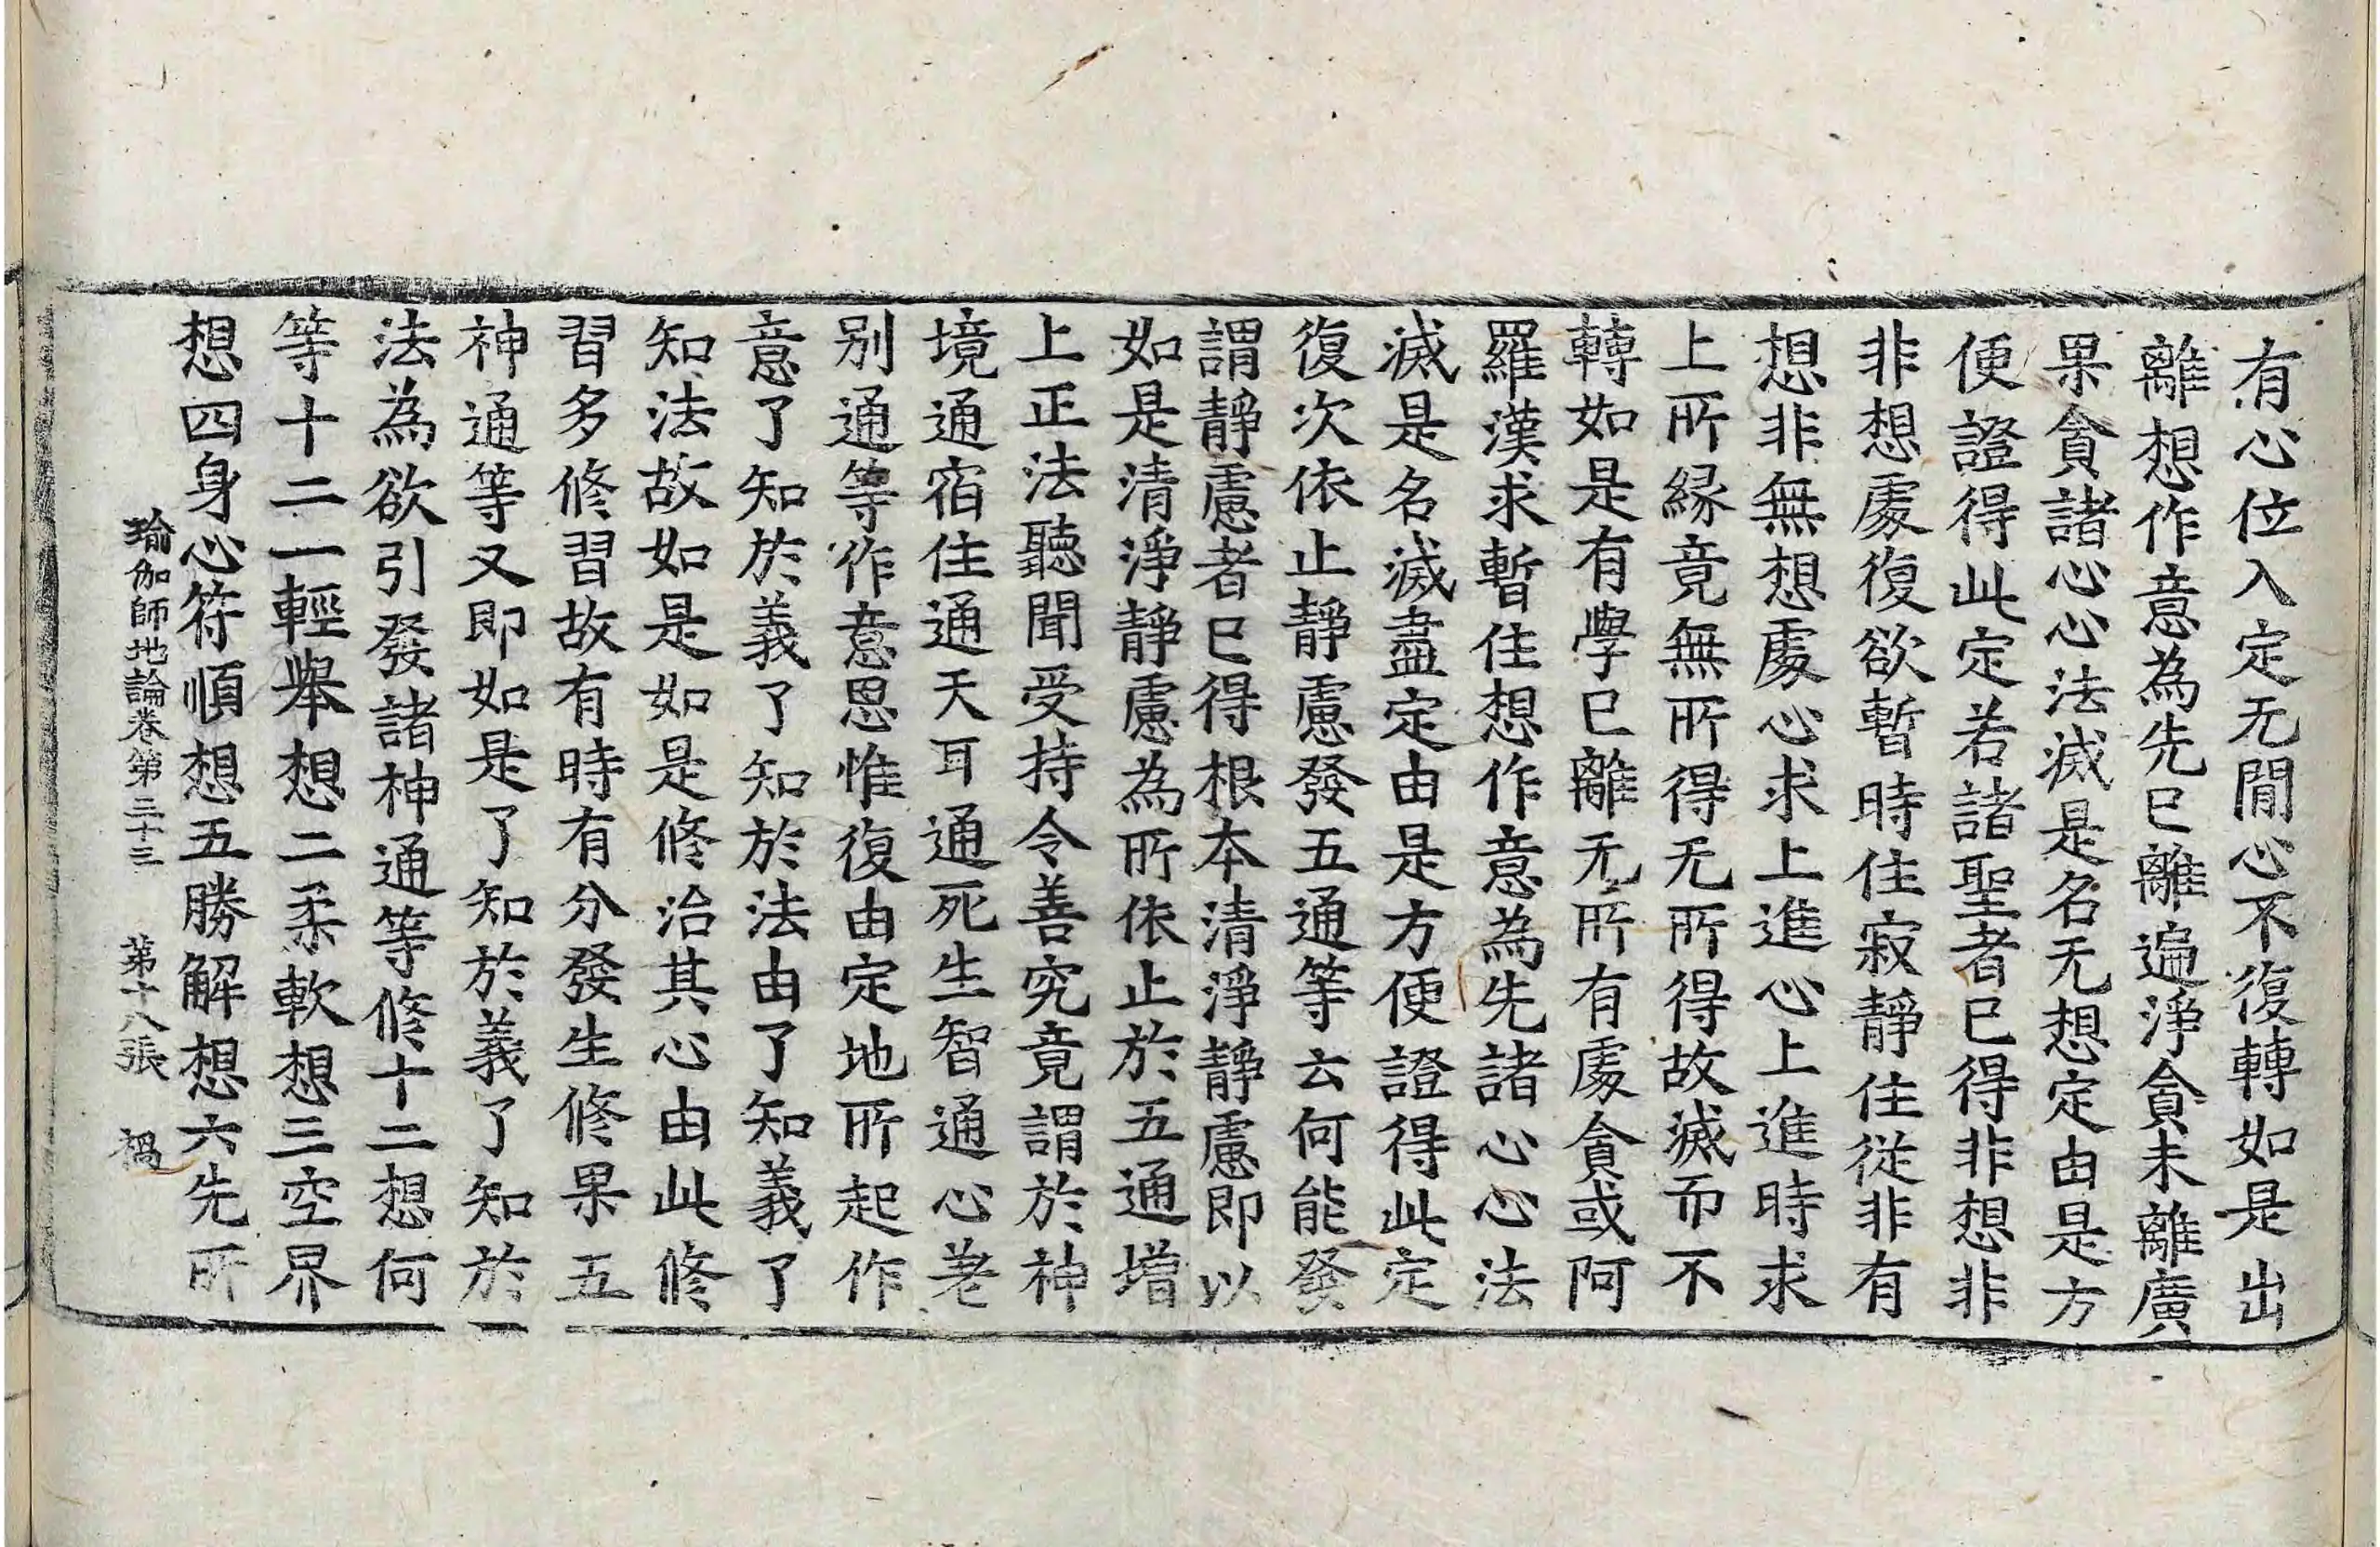 有心位入定无閒心不復轉如是出
離想作意為先已離遍淨貪未離廣
果貪諸心心法滅是名无想定由是方
便證得此定若諸聖者已得非想非
非想處復欲暫時住寂靜住從非有
想非無想處心求上進心上進時求
上所緣竟無所得无所得故滅而不
轉如是有學已離无所有處貪或阿
羅漢求暫住想作意為先諸心心法
滅是名滅盡定由是方便證得此定
復次依止靜慮發五通等云何能發
謂靜慮者已得根本清淨靜慮即以
如是清淨靜慮為所依止於五通增
上正法聽聞受持令善究竟謂於神
境通通宿住通天耳通死生智通心差
別通等作意思惟復由定地所起作
意了知於義了知於法由了知義了
知法故如是如是修治其心由此修
習多修習故有時有分發生修果五
神通等又即如是了知於義了知於
法為欲引發諸神通等修十二想何
等十二一輕舉想二柔軟想三空界
想四身心符順想五勝解想六先所
瑜伽師地論卷第三十三 第十八張 禍